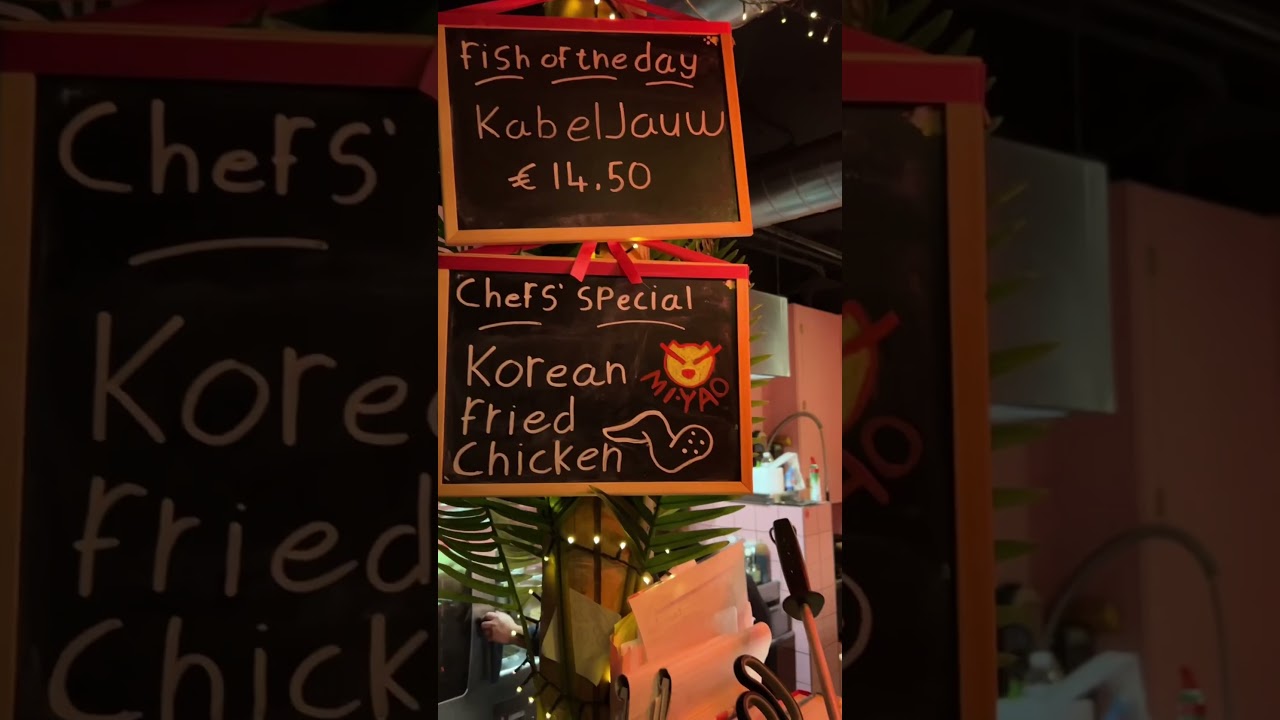 Fish of the day
Kabeljauw
€ 14.50
Chefs' Special
Korean
Fried
Chicken
MI-YAO